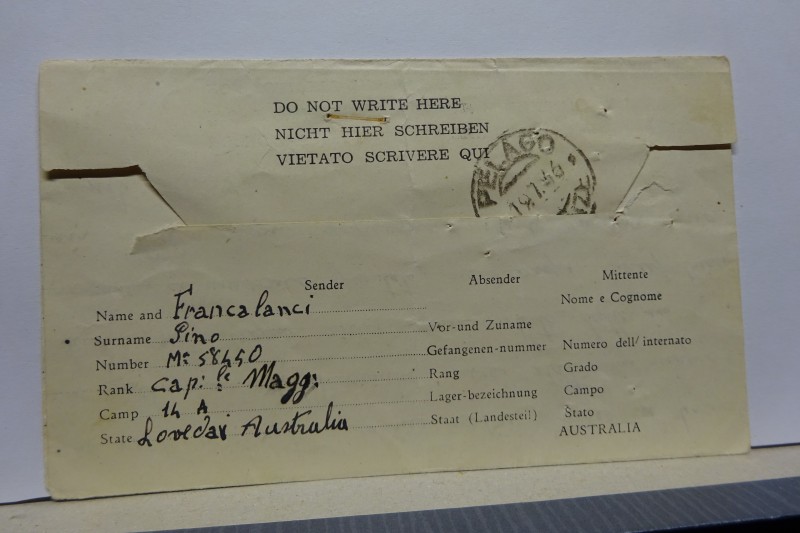 DO NOT WRITE HERE
NICHT HIER SCHREIBEN
VIETATO SCRIVERE QUI
PELAGO
Sender Absender Mittente
Name and Francalanci Nome e Cognome
Surname Pino Vor-und Zuname
Number Mº 58450 Gefangenen-nummer Numero dell' internato
Rank Cap: le Magg: Rang Grado
Camp 14 A Lager-bezeichnung Campo
State Loveday Australia Staat (Landesteil) Stato
AUSTRALIA